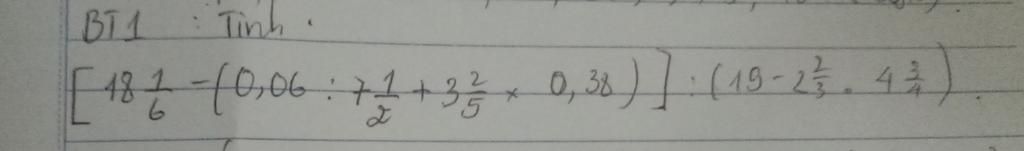 BT1 : Tính.
[18 1/6 - (0,06 : 7 1/2 + 3 2/5 × 0,38)] : (19 - 2 2/3 . 4 3/4)